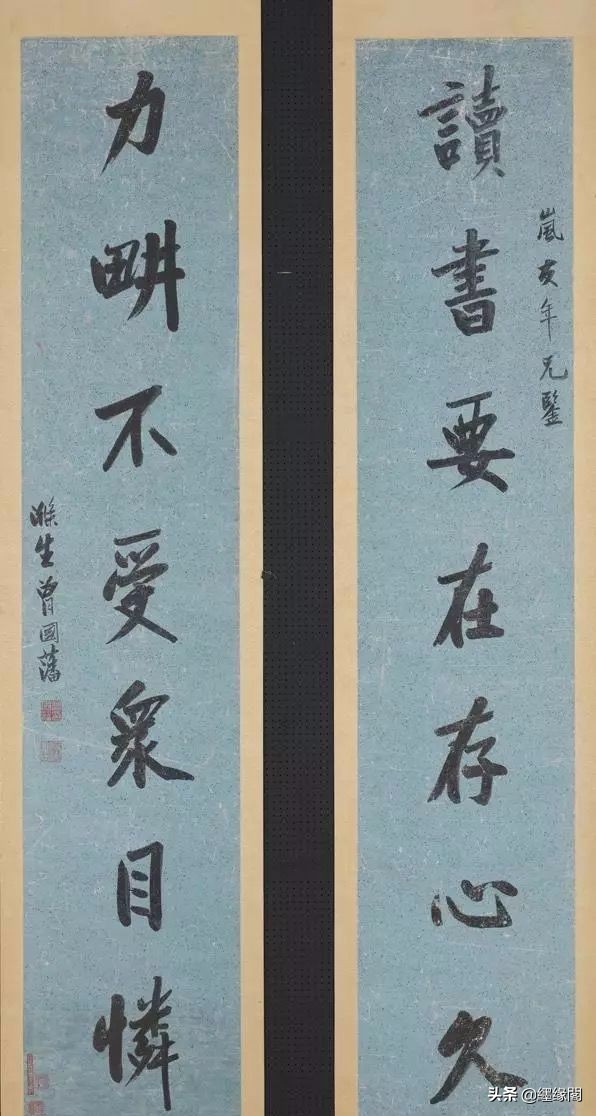 嵐友年兄鑒
讀書要在存心久
力畊不受衆目憐
滌生曾國藩
头条 @缘閣